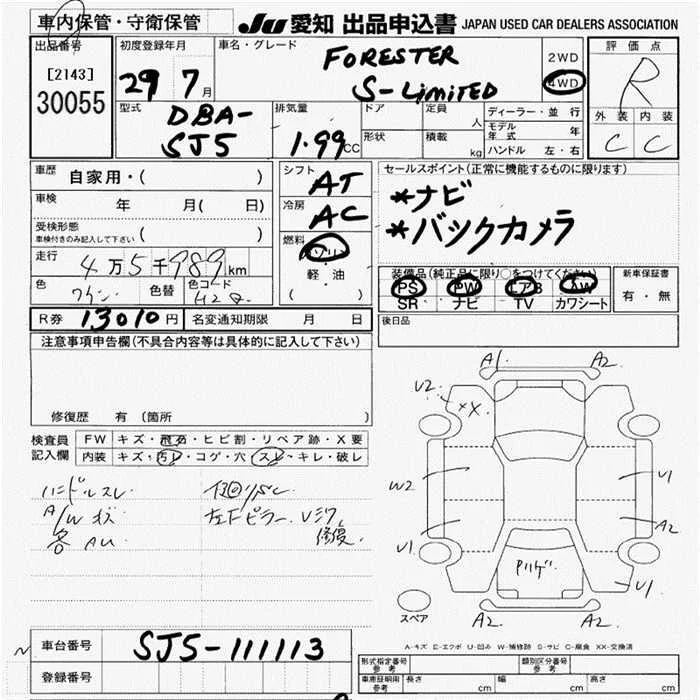 車内保管・守衛保管
JU 愛知 出品申込書 JAPAN USED CAR DEALERS ASSOCIATION
出品番号
[2143]
30055
初度登録年月
29 7月
車名・グレード
FORESTER
S-LIMITED
2WD
4WD
評価点
R
外装 内装
C C
型式
DBA-
SJ5
排気量
1.99CC
ドア
形状
定員
人
積載
kg
ディーラー・並行
モデル年式 年
ハンドル 左・右
車歴
自家用・( )
車検 年 月( 日)
受検形態
車検付きのみ記入して下さい ( )
走行 4万5千989km
色
色替
色コード
シフト AT
冷房 AC
燃料
ガソリン
軽油
( )
セールスポイント(正常に機能するものに限ります)
*ナビ
*バックカメラ
装備品(純正品に限り○をつけてください)
PS PW エアB AW
SR ナビ TV カワシート
新車保証書
有・無
R券 13010円 名変通知期限 月 日
後日品
注意事項申告欄(不具合内容等は具体的に記入して下さい)
修復歴 有(箇所 )
検査員
記入欄
FW キズ・飛石・ヒビ割・リペア跡・X要
内装 キズ・汚レ・コゲ・穴・スレ・キレ・破レ
ハンドルスレ
A/W キズ
各 AU
左下ピラー
修復
A1 A2
U2 XX
W2 U1
A2
U1 U1
A2 A2
スペア
A-キズ E-エクボ U-凹み W-補修跡 S-サビ C-腐食 XX-交換済
車台番号 SJ5-111113
登録番号
形式指定番号
参考
類別区分番号
参考
車庫証明用
参考
長さ cm 幅 cm 高さ cm